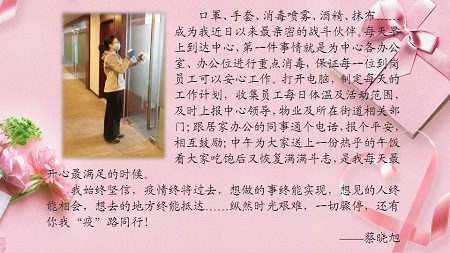 口罩、手套、消毒喷雾、酒精、抹布……
成为我近日以来最亲密的战斗伙伴。每天早
上到达中心,第一件事情就是为中心各办公
室、办公位进行重点消毒,保证每一位到岗
员工可以安心工作。打开电脑,制定每天的
工作计划,收集员工每日体温及活动范围,
及时上报中心领导,物业及所在街道相关部
门;跟居家办公的同事通个电话,报个平安,
相互鼓励;中午为大家送上一份热乎的午饭
看大家吃饱后又恢复满满斗志,是我每天最
开心最满足的时候。
我始终坚信,疫情终将过去,想做的事终能实现,想见的人终
能相会,想去的地方终能抵达……纵然时光艰难,一切骤停,还有
你我“疫”路同行!
——蔡晓旭